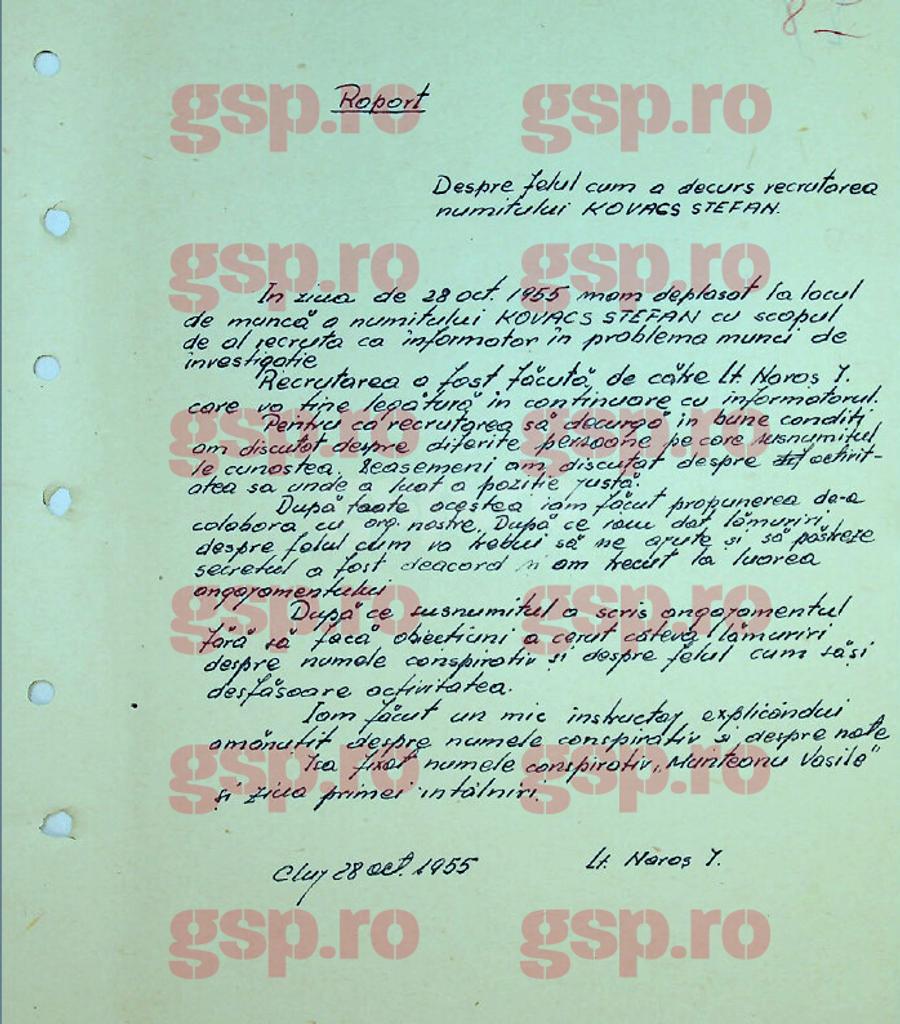 8
Raport
Despre felul cum a decurs recrutarea
numitului KOVACS STEFAN.
In ziua de 28 oct. 1955 mam deplasat la locul
de muncă a numitului KOVACS STEFAN cu scopul
de al recruta ca informator în problema munci de
investigatie
Recrutarea a fost făcută de către Lt. Naroș I.
care va ține legătură în continuare cu informatorul.
Pentru ca recrutarea să decurgă în bune conditi
am discutat despre diferite persoane pe care susnumitul
le cunostea. Deasemeni am discutat despre activit-
atea sa unde a luat o pozitie justă.
După toate acestea iam făcut propunerea de-a
colabora cu org. nostre. După ce iam dat lămuriri
despre felul cum va trebui să ne ajute și să păstreze
secretul a fost deacord am trecut la luarea
angajamentului
După ce susnumitul a scris angajamentul
fără să facă obiectiuni a cerut cîteva lămuriri
despre numele conspirativ și despre felul cum săși
desfășoare activitatea.
Iam făcut un mic instructaj explicîndui
amănutit despre numele conspirativ și despre note
Isa fixat numele conspirativ „Munteanu Vasile"
și ziua primei intâlniri.
Cluj 28 oct. 1955
Lt. Naroș I.
gsp.ro gsp.ro
gsp.ro gsp.ro
gsp.ro gsp.ro
gsp.ro gsp.ro
gsp.ro gsp.ro
gsp.ro gsp.ro